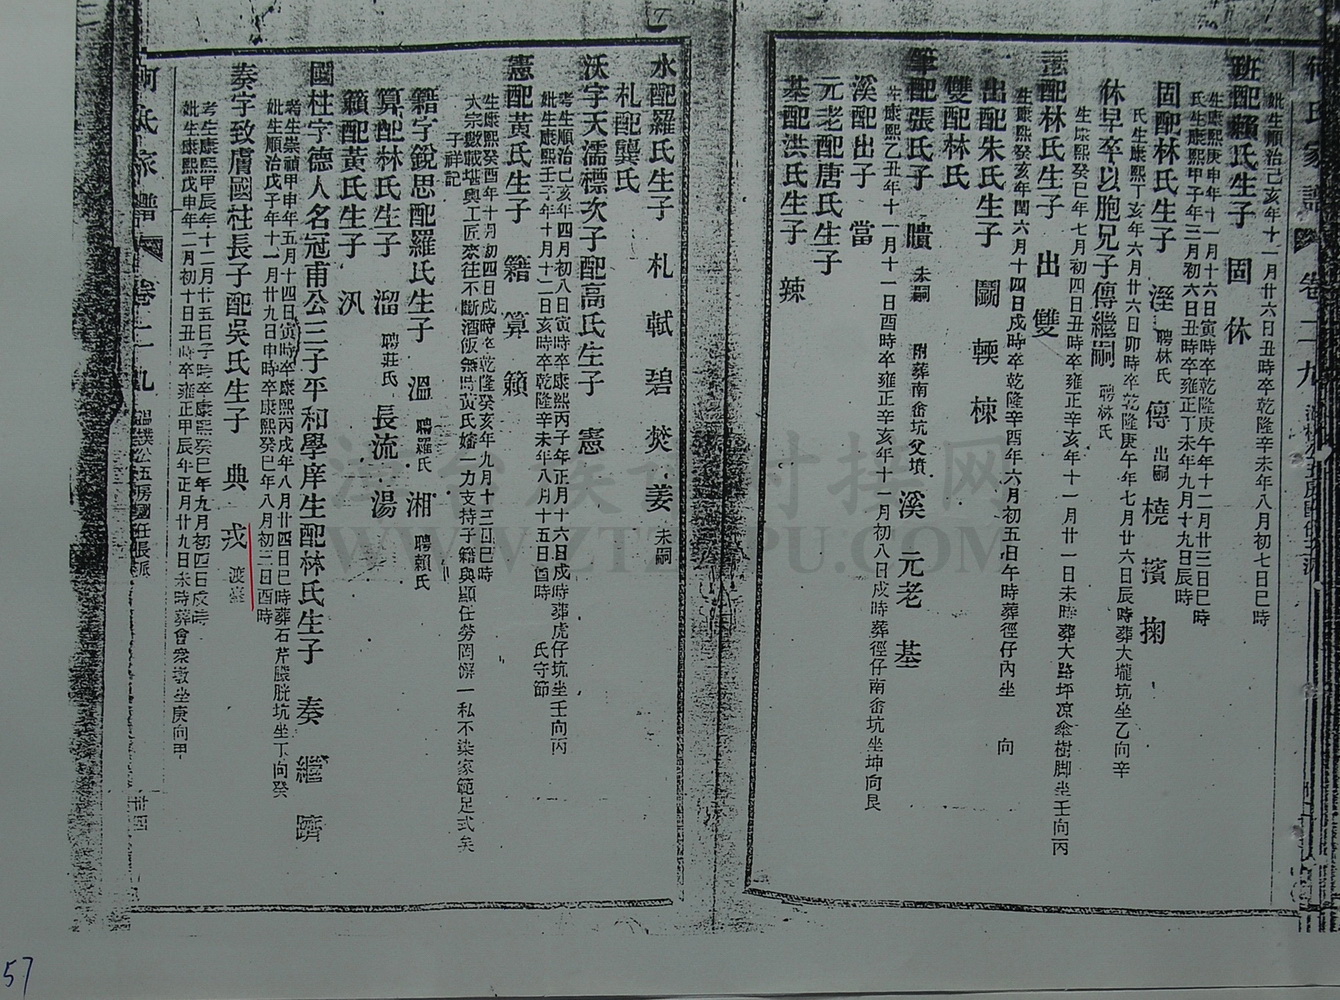 何氏家譜 卷二十九
妣生順治己亥年十一月廿六日丑時卒乾隆辛未年八月初七日巳時
班配賴氏生子 固 休
生康熙庚申年十一月十六日寅時卒乾隆庚午年十二月廿三日巳時
氏生康熙甲子年三月初六日丑時卒雍正丁未年九月十九日辰時
固配林氏生子 溼 聘林氏 傳 出嗣 橈 擯 掬
氏生康熙丁亥年六月廿六日卯時卒乾隆庚午年七月廿六日辰時葬大壠坑坐乙向辛
休早卒以胞兄子傳繼嗣 聘林氏
生康熙癸巳年七月初四日丑時卒雍正辛亥年十一月廿一日未時葬大路坪凉傘樹脚坐壬向丙
憲配林氏生子 出 雙
生康熙癸亥年閏六月十四日戌時卒乾隆辛酉年六月初五日午時葬徑仔內坐 向
出配朱氏生子 鬭 輭 棟
雙配林氏
筆配張氏子 膭 未嗣 附葬南畬坑父墳 溪 元老 基
生康熙乙丑年十一月十一日酉時卒雍正辛亥年十一月初八日戌時葬徑仔南畬坑坐坤向艮
溪配出子 當
元老配唐氏生子
基配洪氏生子 辣
水配羅氏生子 札 軾 碧 焚 姜 未嗣
札配龔氏
沃字天濡標次子配高氏生子 憲
考生順治己亥年四月初八日寅時卒康熙丙子年正月十六日戌時葬虎仔坑坐壬向丙
妣生康熙壬子年十月十二日亥時卒乾隆辛未年八月十五日酉時 氏守節
憲配黃氏生子 籍 算 籟
生康熙癸酉年十月初四日戌時卒乾隆癸亥年九月十三日巳時
大宗繳載堪輿工匠來往不斷酒飯無時黃氏嬸一力支持子籍與顯任勞罔懈一私不染家範足式矣
子祥記
籍字銳思配羅氏生子 溫 聘羅氏 湘 聘賴氏
算配林氏生子 溜 聘莊氏 長流 湯
籟配黃氏生子 汎
國柱字德人名冠甫公三子平和學庠生配林氏生子 奏 繼 躋
考生崇禎甲申年五月十四日寅時卒康熙丙戌年八月廿四日巳時葬石芹陂胱坑坐丁向癸
妣生順治戊子年十一月廿九日申時卒康熙癸巳年八月初三日酉時
奏字致膚國柱長子配吳氏生子 典 戎 渡臺
考生康熙甲辰年十二月廿五日子時卒康熙癸巳年九月初四日戌時
妣生康熙戊申年二月初十日丑時卒雍正甲辰年正月廿九日未時葬會眾墩坐庚向甲
何氏家譜 卷二十九 溫樸公五房國任張派 廿四
漳台族谱对接网
WWW.ZTZUPU.COM
57